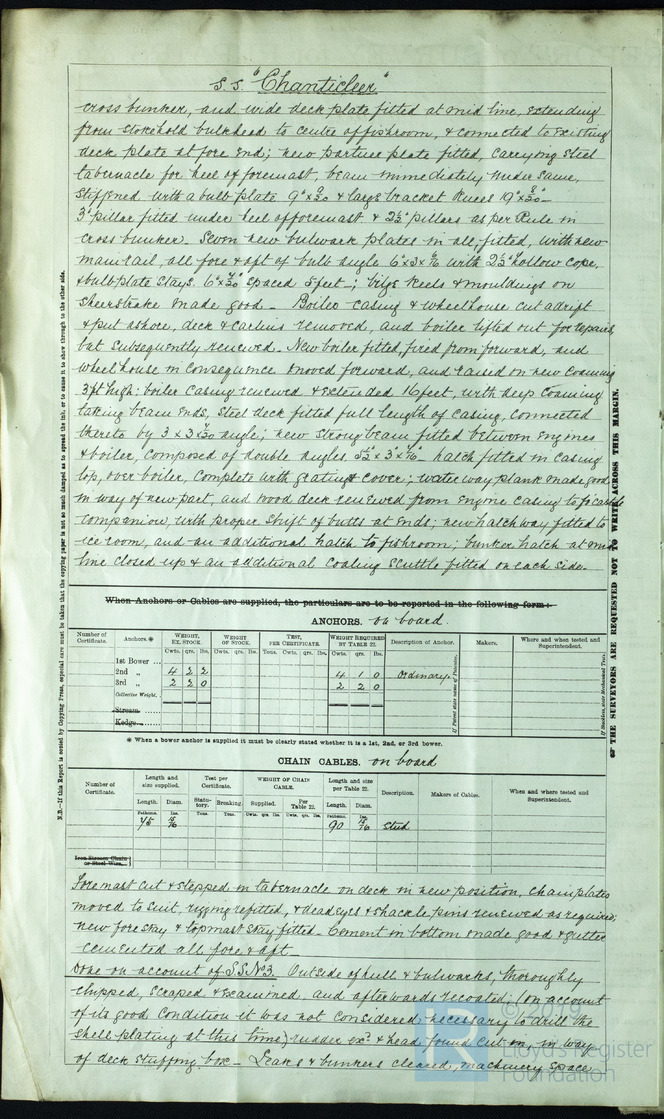 S.S. "Chanticleer"
cross bunker, and wide deck plate fitted at mid line, extending
from stokehold bulkhead to centre of fishroom, & connected to existing
deck plate at fore end; new partner plate fitted, carrying steel
tabernacle for heel of foremast, beam immediately under same,
stiffened with a bulb plate 9" x 9/20 & large bracket knees 19" x 8/20 –
3" pillar fitted under heel of foremast & 2½" pillars as per Rule in
cross bunker. Seven new bulwark plates in all, fitted, with new
main rail, all fore & aft of bulb angle 6" x 3 x 6/16 with 2½" hollow cope,
& bulb plate stays 6" x 7/20 spaced 5 feet –; bilge keels & mouldings on
sheerstrake made good – Boiler casing & wheelhouse cut adrift
& put ashore, deck & carlins removed, and boiler lifted out for repairs,
but subsequently renewed. New boiler fitted, fired from forward, and
wheelhouse in consequence moved forward, and raised on new coaming
3ft high; boiler casing renewed & extended 16 feet, with deep coaming
taking beam ends, steel deck fitted full length of casing, connected
thereto by 3 x 3 x 7/20 angle; new strong beam fitted between engines
& boiler, composed of double angles 5½ x 3" x 6/16" hatch fitted in casing
top, over boiler, complete with grating & cover; waterway plank made good
in way of new part, and wood deck renewed from engine casing to fo'castle
companion, with proper shift of butts at ends; new hatchway fitted to
ice room, and an additional hatch to fishroom; bunker hatch at mid
line closed up & an additional coaling scuttle fitted on each side.
When Anchors or Cables are supplied, the particulars are to be reported in the following form:
ANCHORS. on board.
Number of Certificate. Anchors.* WEIGHT, EX. STOCK. WEIGHT OF STOCK. TEST, PER CERTIFICATE. WEIGHT REQUIRED BY TABLE 22. Description of Anchor. Makers. Where and when tested and Superintendent.
Cwts. qrs. lbs. Cwts. qrs. lbs. Tons. Cwts. qrs. lbs. Cwts. qrs. lbs.
1st Bower ...
2nd „ 4 2 2 4 1 0 Ordinary
3rd „ 2 2 0 2 2 0
Collective Weight.
Stream ......
Kedge ......
* When a bower anchor is supplied it must be clearly stated whether it is a 1st, 2nd, or 3rd bower.
CHAIN CABLES. on board
Number of Certificate. Length and size supplied. Test per Certificate. WEIGHT OF CHAIN CABLE. Length and size per Table 22. Description. Makers of Cables. When and where tested and Superintendent.
Length. Diam. Statutory. Breaking. Supplied. Per Table 22. Length. Diam.
Fathoms. Ins. Tons. Tons. Cwts. qrs. lbs. Cwts. qrs. lbs. Fathoms. Ins.
75 15/16 90 15/16 Stud
Iron Stream Chain or Steel Wire..
Foremast cut & stepped in tabernacle on deck in new position, chainplates
moved to suit, rigging refitted, & deadeyes & shackle pins renewed as required;
new fore stay & topmast stay fitted. Cement in bottom made good & gutter
cemented all fore & aft
Done on account of S.S. No3. Outside of hull & bulwarks, thoroughly
chipped, scraped & examined, and afterwards recoated; (on account
of its good condition it was not considered necessary to drill the
shell plating at this time) rudder exd. & head found cut in, in way
of deck stuffing box – Peaks & bunkers cleared, machinery space
N.B.–If this Report is copied by Copying Press, especial care must be taken that the copying paper is not so much damped as to spread the ink, or to cause it to show through to the other side.
THE SURVEYORS ARE REQUESTED NOT TO WRITE ACROSS THIS MARGIN.
If Patent state name of Patentee.
© 2019
Lloyd's Register
Foundation